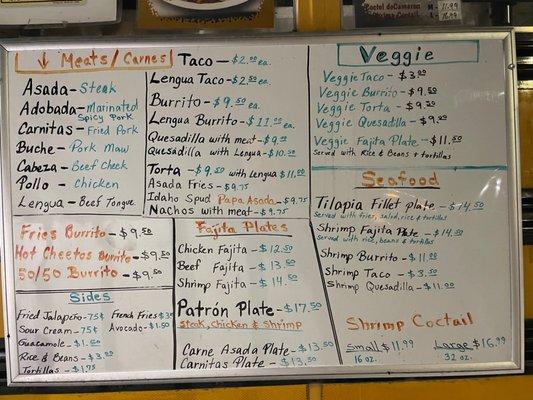 ↓ Meats/Carnes
Asada - Steak
Adobada - Marinated Spicy Pork
Carnitas - Fried Pork
Buche - Pork Maw
Cabeza - Beef Cheek
Pollo - Chicken
Lengua - Beef Tongue
Taco - $2.00 ea.
Lengua Taco - $2.50 ea.
Burrito - $9.50 ea.
Lengua Burrito - $11.00 ea.
Quesadilla with meat - $9.00
Quesadilla with Lengua - $10.50
Torta - $9.50 with Lengua $11.00
Asada Fries - $9.75
Idaho Spud Papa Asada - $9.75
Nachos with meat - $9.75
Veggie
Veggie Taco - $3.00
Veggie Burrito - $9.50
Veggie Torta - $9.50
Veggie Quesadilla - $9.00
Veggie Fajita Plate - $11.50
Served with Rice & Beans & tortillas
Fries Burrito - $9.50
Hot Cheetos Burrito - $9.50
50/50 Burrito - $9.50
Sides
Fried Jalapeño - 75¢ French Fries $3
Sour Cream - 75¢ Avocado - $1.50
Guacamole - $1.00
Rice & Beans - $3.00
Tortillas - $1.75
Fajita Plates
Chicken Fajita - $12.50
Beef Fajita - $13.50
Shrimp Fajita - $14.50
Patrón Plate - $17.50
Steak, Chicken & Shrimp
Carne Asada Plate - $13.50
Carnitas Plate - $13.50
Seafood
Tilapia Fillet Plate - $14.50
Served with fries, salad, rice & tortillas
Shrimp Fajita Plate - $14.00
Served with rice, beans & tortillas
Shrimp Burrito - $11.00
Shrimp Taco - $3.50
Shrimp Quesadilla - $11.00
Shrimp Coctail
Small $11.99 Large $16.99
16 oz. 32 oz.
Coctel de Camaron M 11.99
Shrimp Cocktail L 16.99